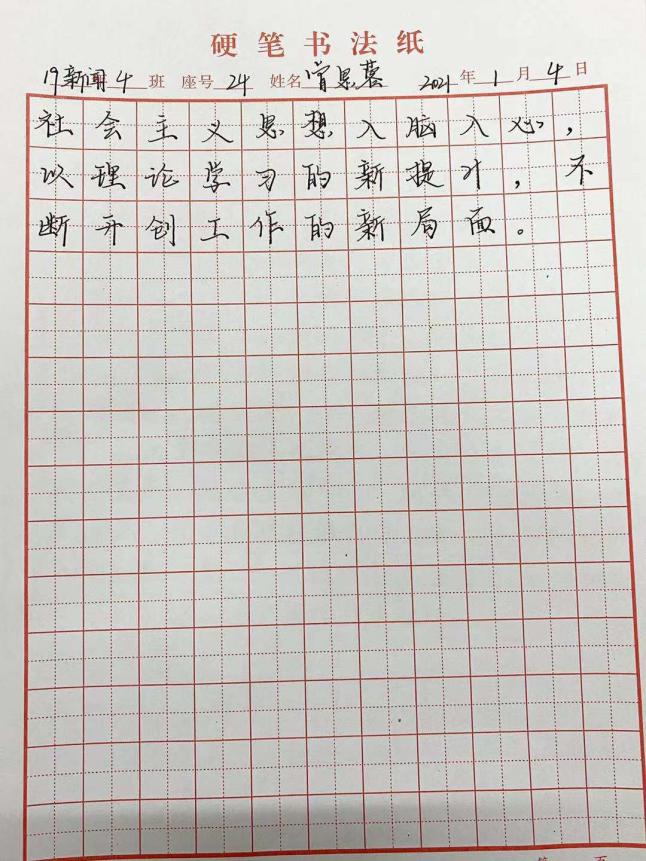 硬笔书法纸
19新闻4班 座号24 姓名曾思蓉 2021年1月4日
社会主义思想入脑入心，
以理论学习的新提升，不
断开创工作的新局面。